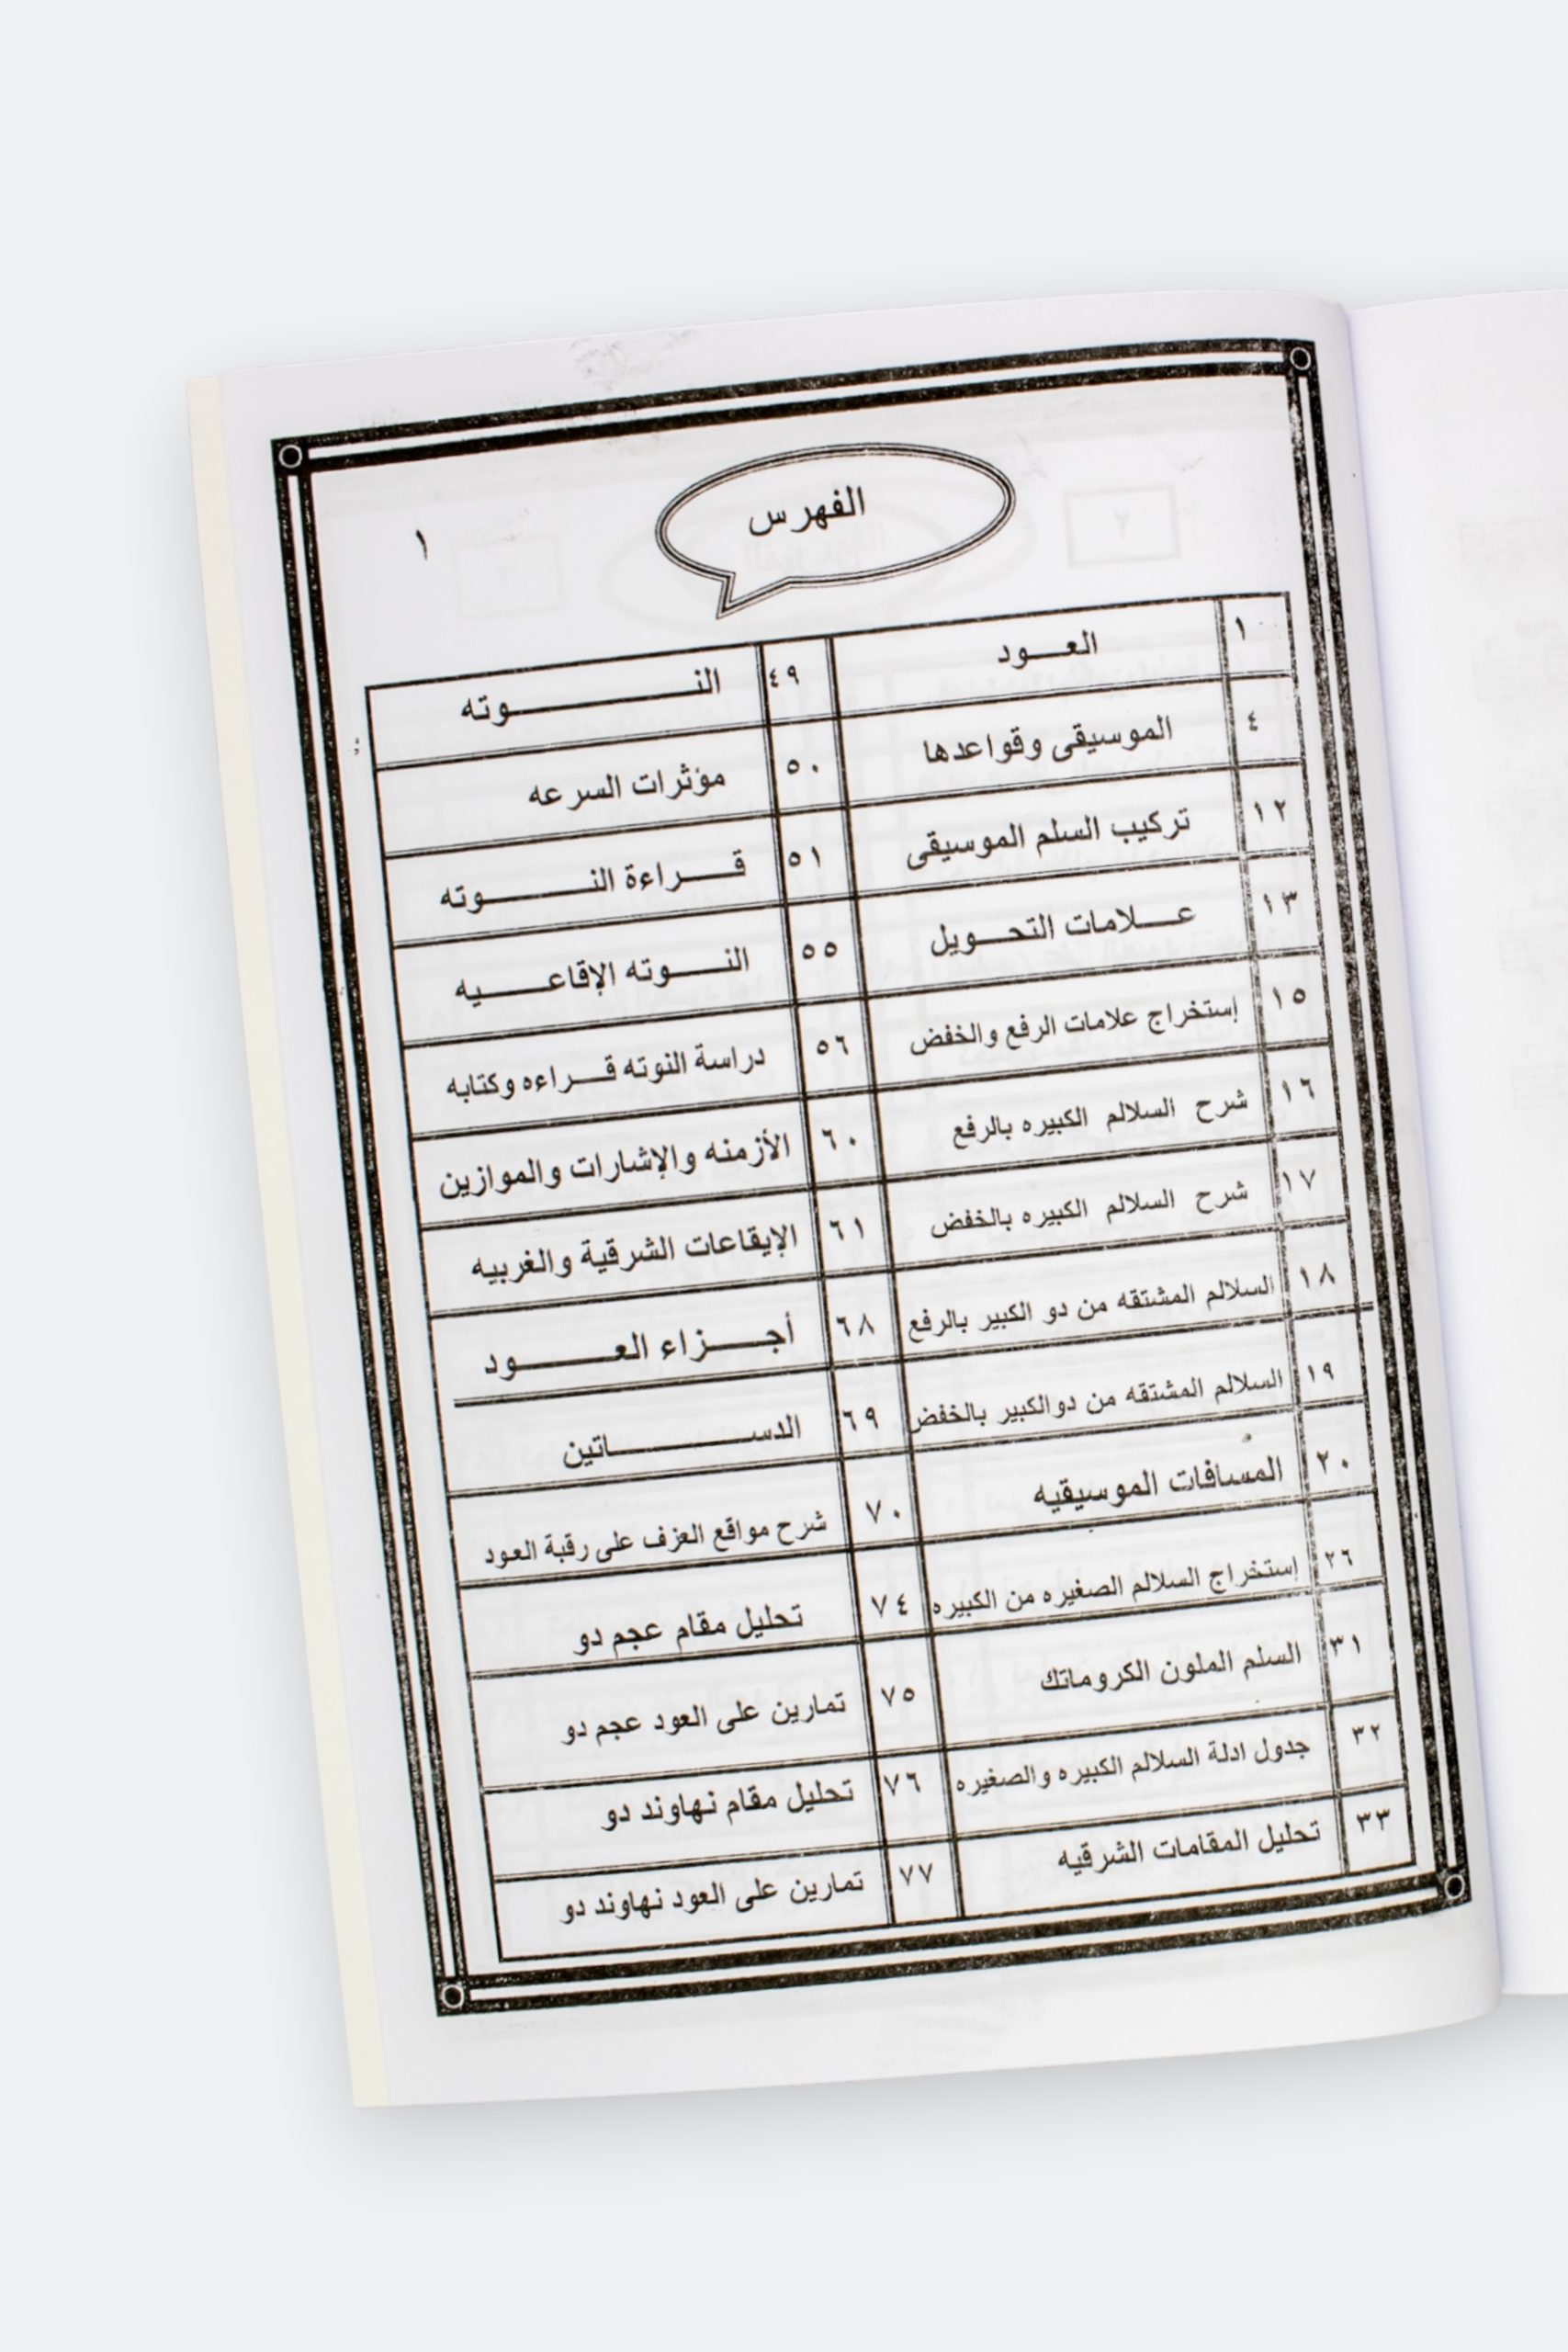 الفهرس
١
١ العود ٤٩ النوته
٤ الموسيقى وقواعدها ٥٠ مؤثرات السرعه
١٢ تركيب السلم الموسيقى ٥١ قراءة النوته
١٣ علامات التحويل ٥٥ النوته الإقاعيه
١٥ إستخراج علامات الرفع والخفض ٥٦ دراسة النوته قراءه وكتابه
١٦ شرح السلالم الكبيره بالرفع ٦٠ الأزمنه والإشارات والموازين
١٧ شرح السلالم الكبيره بالخفض ٦١ الإيقاعات الشرقية والغربيه
١٨ السلالم المشتقه من دو الكبير بالرفع ٦٨ أجزاء العود
١٩ السلالم المشتقه من دوالكبير بالخفض ٦٩ الدساتين
٢٠ المسافات الموسيقيه ٧٠ شرح مواقع العزف على رقبة العود
٢٦ إستخراج السلالم الصغيره من الكبيره ٧٤ تحليل مقام عجم دو
٣١ السلم الملون الكروماتك ٧٥ تمارين على العود عجم دو
٣٢ جدول ادلة السلالم الكبيره والصغيره ٧٦ تحليل مقام نهاوند دو
٣٣ تحليل المقامات الشرقيه ٧٧ تمارين على العود نهاوند دو